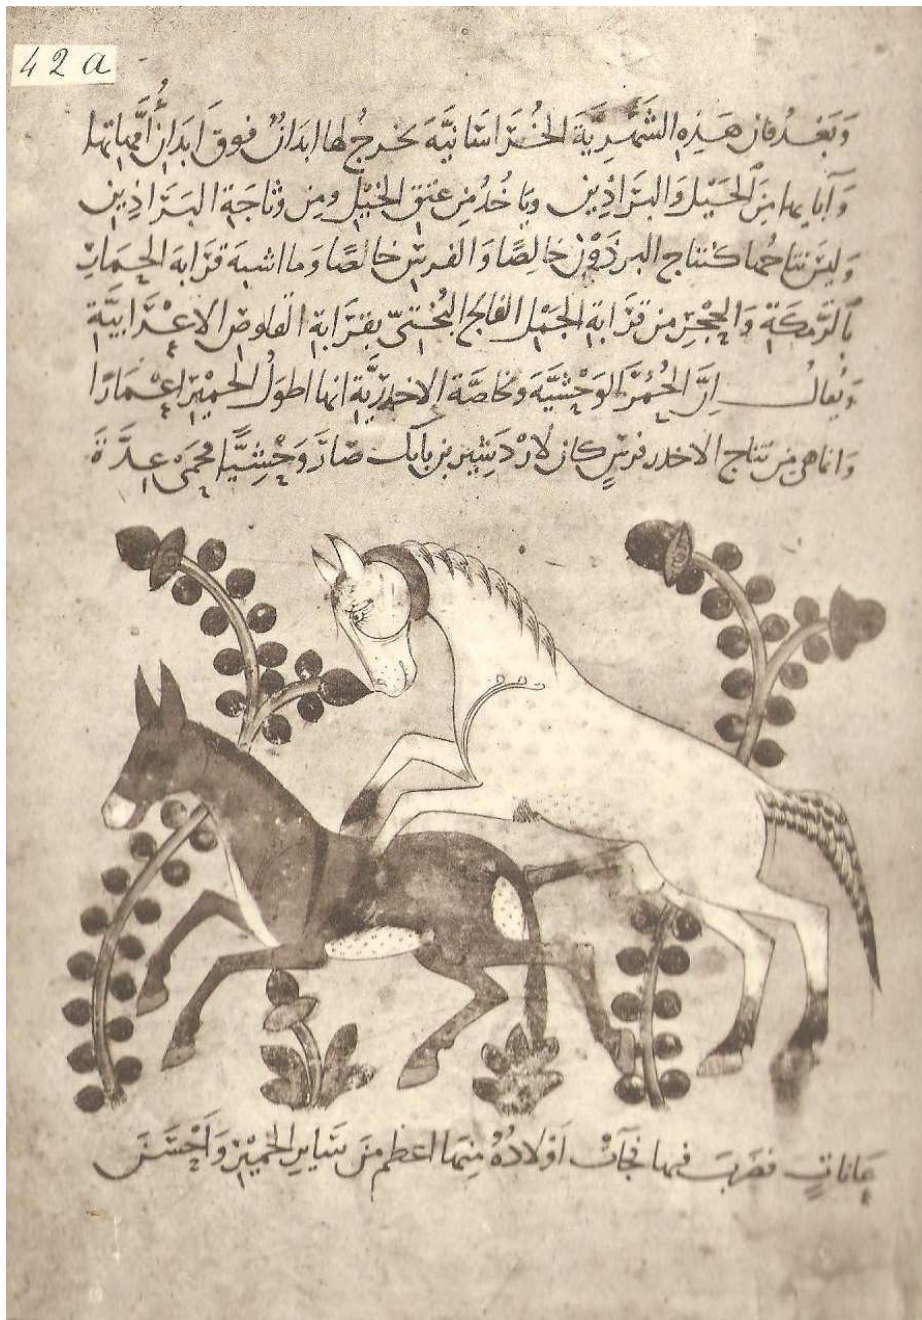 42a
وَبَعْدُ فان هَذِهِ الشَّهْرِيَّةَ الخُرَاسَانيَّةَ يخرجُ لها ابدَانٌ فوق ابدَانِ أمَّهاتها
وَآبايها مِنَ الخَيْل وَالبَرَاذِين وياخُذُ مِن عِتق الخيْل ومِن وثاجَةِ البَرَاذِين
وَليسَ نتاجُها كنتاج البرذَوْن خالِصًا وَالفرس خالصًا وَما اشبهَ قرابة الحِمارِ
بالرَّمكةِ وَالحِجْرِ من قَرابةِ الجَمَل الفالج البُختيّ بقرَابةِ القلوص الاعْرَابيَّةِ
وَيُقالُ اِنَّ الحُمُرَ الوَحْشيَّةَ وَبخاصَّة الاخدريَّة انها اطولُ الحَميْرِ اعْمَارًا
وَانما هي مِن نتاج الاخدر فرسٍ كان لارْدَشِير بن بابَك صَارَ وَحْشيًّا فحَمَى عِدَّةَ
عَاناتٍ فضربَ فيها فجآت اوْلادُهُ مِنها اعظم من سَايرِ الحَميْرِ وَاحْسَنَ